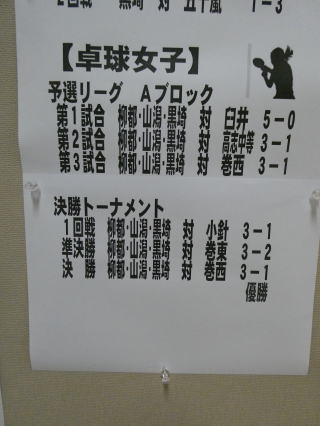 2回戦 黒埼 対 五十嵐 1-3
【卓球女子】
予選リーグ Aブロック
第1試合 柳都・山潟・黒埼 対 臼井 5-0
第2試合 柳都・山潟・黒埼 対 高志中等 3-1
第3試合 柳都・山潟・黒埼 対 巻西 3-1
決勝トーナメント
1回戦 柳都・山潟・黒埼 対 小針 3-1
準決勝 柳都・山潟・黒埼 対 巻東 3-2
決勝 柳都・山潟・黒埼 対 巻西 3-1
優勝